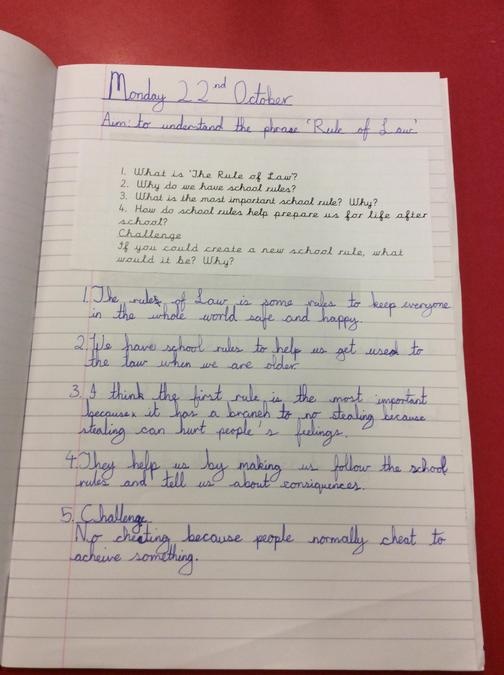 Monday 22nd October
Aim: to understand the phrase 'Rule of Law'
1. What is 'The Rule of Law'?
2. Why do we have school rules?
3. What is the most important school rule? Why?
4. How do school rules help prepare us for life after
school?
Challenge
If you could create a new school rule, what
would it be? Why?
1. The rules of Law is some rules to keep everyone
in the whole world safe and happy.
2. We have school rules to help us get used to
the law when we are older.
3. I think the first rule is the most important
because it has a branch to no stealing because
stealing can hurt people's feelings.
4. They help us by making us follow the school
rules and tell us about consiquences.
5. Challenge
No cheating because people normally cheat to
acheive something.